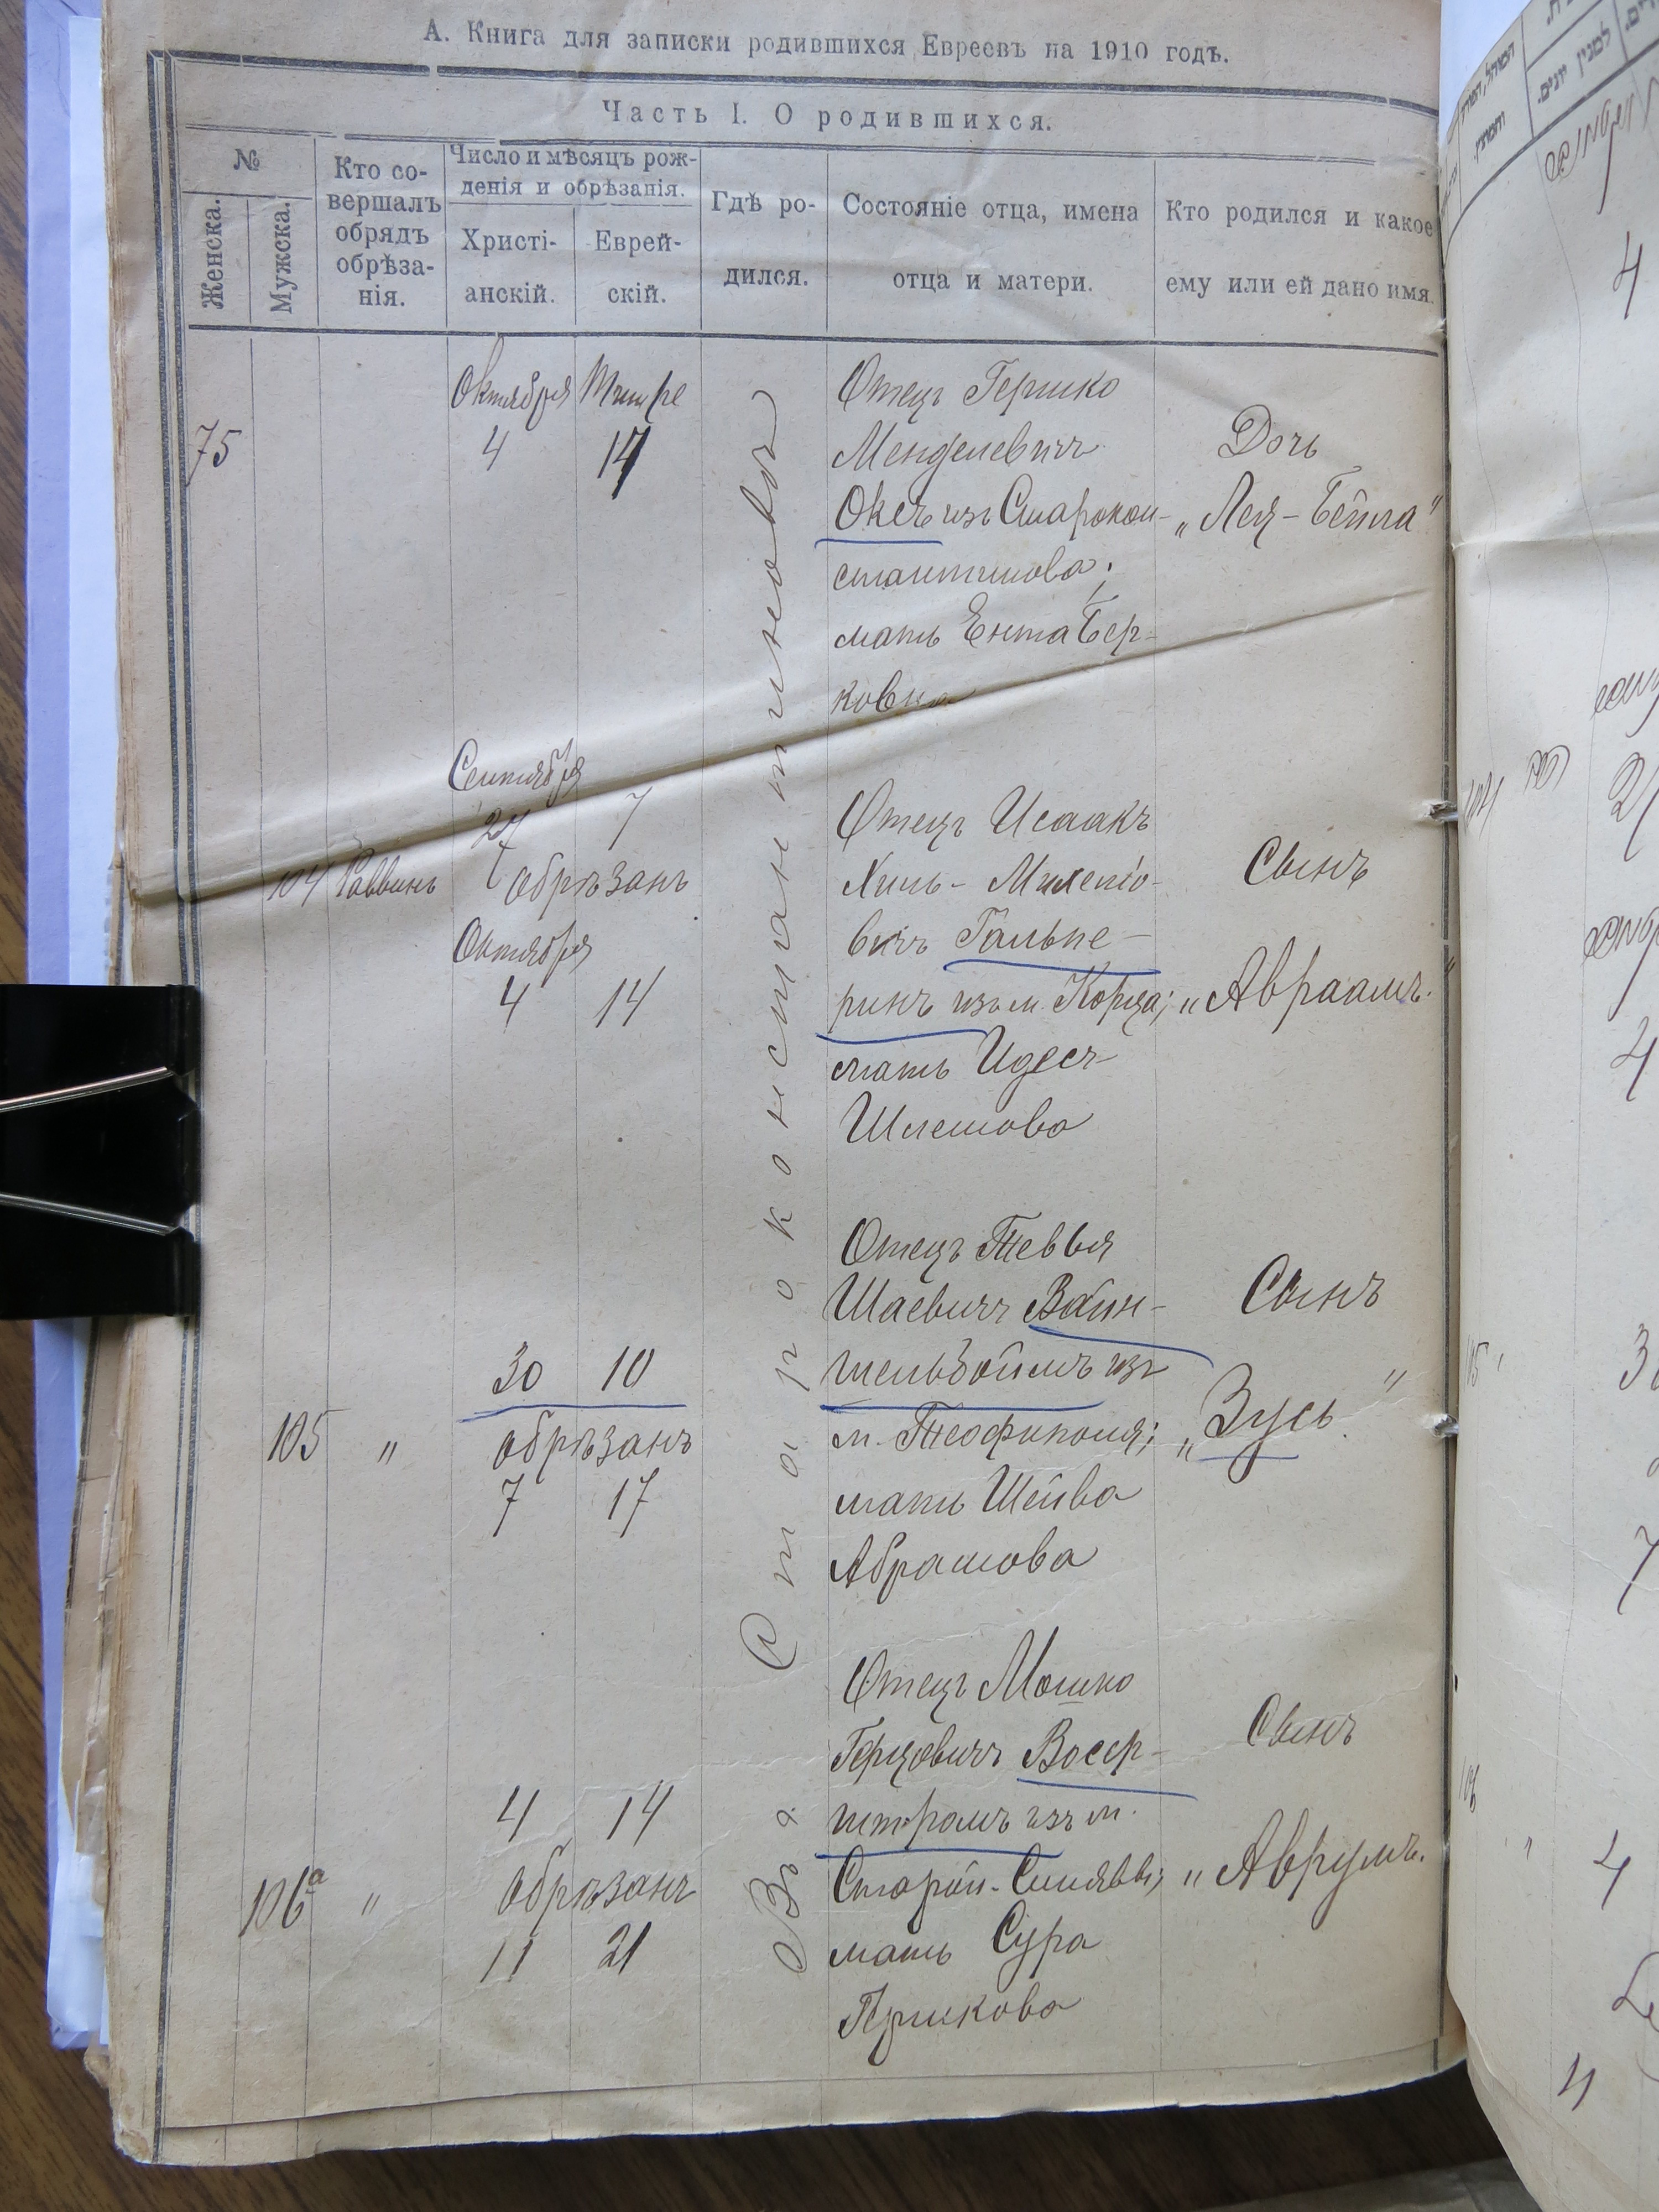 А. Книга для записки родившихся Евреевъ на 1910 годъ.
Часть I. О родившихся.
№
Женска.
Мужска.
Кто со-
вершалъ
обрядъ
обрѣза-
нія.
Число и мѣсяцъ рож-
денія и обрѣзанія.
Христі-
анскій.
Еврей-
скій.
Гдѣ ро-
дился.
Состояніе отца, имена
отца и матери.
Кто родился и какое
ему или ей дано имя.
Въ г. Староконстантиновѣ
75
Октября Тишре
4 14
Отецъ Гершко
Менделевичъ
Оксъ изъ Старокон-
стантинова;
мать Ента Бер-
ковна
Дочь
„Лея-Бейла"
104 Раввинъ
Сентября
27 7
обрѣзанъ
Октября
4 14
Отецъ Исаакъ
Хиль-Михеліо-
вичъ Гальпе-
ринъ изъ м. Корца;
мать Идесъ
Шлемова
Сынъ
„Авраамъ."
105 "
30 10
обрѣзанъ
7 17
Отецъ Тевья
Шаевичъ Вайн-
тельбоймъ изъ
м. Теофиполя;
мать Шейва
Абрамова
Сынъ
„Зусь"
106а "
4 14
обрѣзанъ
11 21
Отецъ Мошко
Герцовичъ Васер-
штромъ изъ м.
Старой-Синявы;
мать Сура
Гершкова
Сынъ
„Аврумъ.